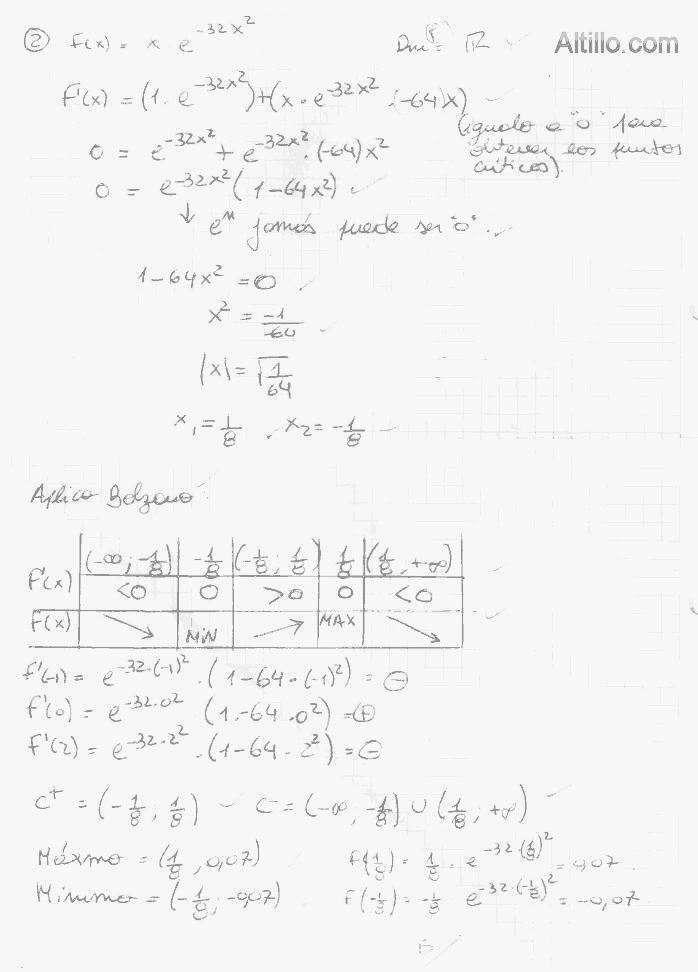 ② F(x) = x e^{-32x²}    Dm(f) = ℝ ✓    Altillo.com
F'(x) = (1 · e^{-32x²}) + (x · e^{-32x²} · (-64)x) ✓
(igualo a "o" para
0 = e^{-32x²} + e^{-32x²} · (-64)x²    obtener los puntos
0 = e^{-32x²} (1 - 64x²) ✓    críticos).
↓ eⁿ jamás puede ser "o". ✓
1 - 64x² = 0 ✓
x² = -1/-64 ✓
|x| = √(1/64)
x₁ = 1/8 ✓ x₂ = -1/8 ✓
Aplico Bolzano
(-∞ ; -1/8) | -1/8 | (-1/8 ; 1/8) | 1/8 | (1/8 , +∞)
F'(x) | <0 | 0 | >0 | 0 | <0
F(x) | ↘ | MíN | ↗ | MAX | ↘
F'(-1) = e^{-32·(-1)²} · (1 - 64 · (-1)²) = ⊖
F'(0) = e^{-32·0²} (1 - 64 · 0²) = ⊕
F'(2) = e^{-32·2²} · (1 - 64 · 2²) = ⊖
C⁺ = (-1/8 ; 1/8) ✓ C⁻ = (-∞ , -1/8) ∪ (1/8 ; +∞) ✓
Máxmo = (1/8 , 0,07)    F(1/8) = 1/8 · e^{-32·(1/8)²} = 0,07
Mínimo = (-1/8 ; -0,07)    F(-1/8) = -1/8 · e^{-32·(-1/8)²} = -0,07
B ✓